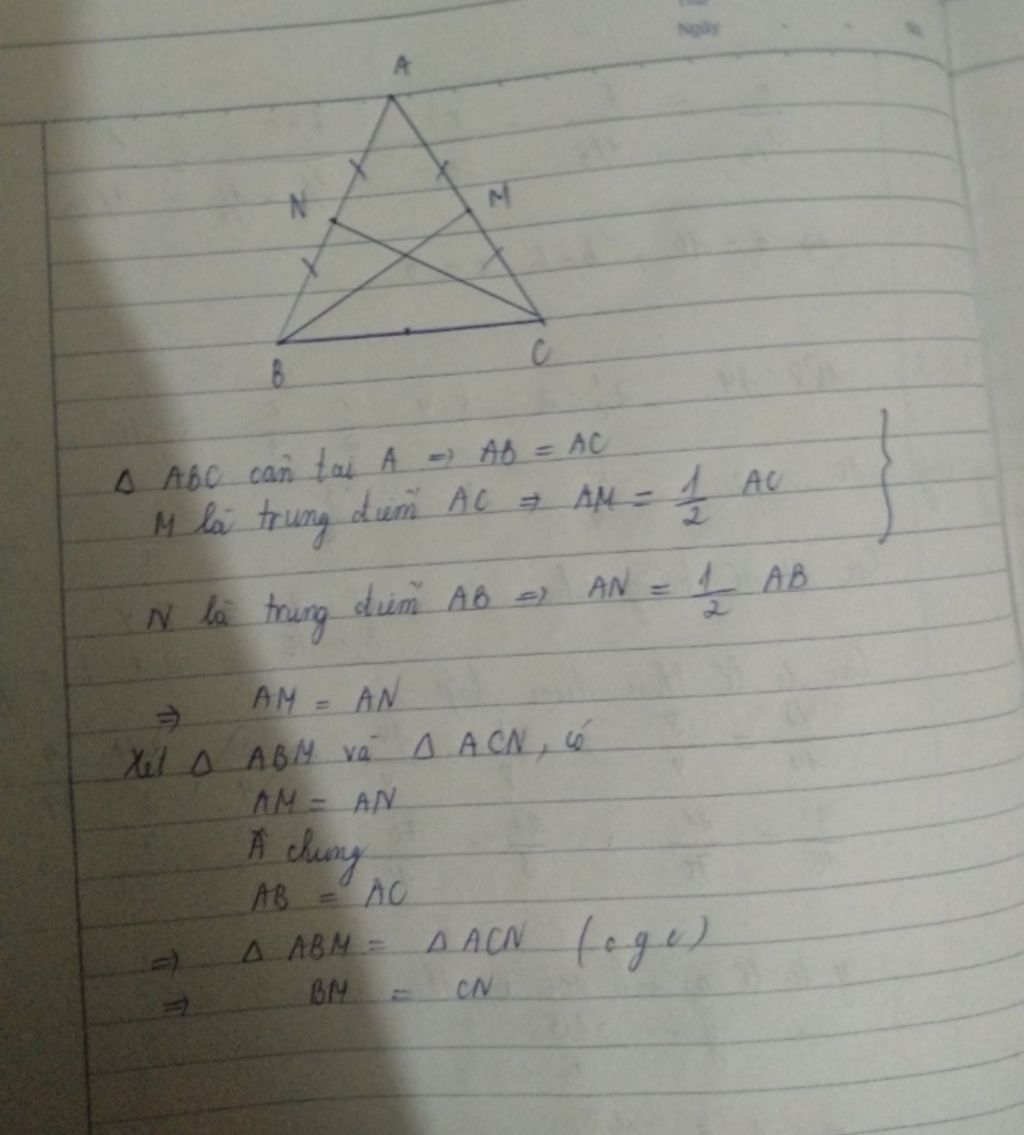 Ngày
A
N
M
B
C
Δ ABC cân tại A => AB = AC
M là trung điểm AC => AM = 1/2 AC
N là trung điểm AB => AN = 1/2 AB
=> AM = AN
Xét Δ ABM và Δ ACN, có
AM = AN
Â chung
AB = AC
=> Δ ABM = Δ ACN (c g c)
=> BM = CN